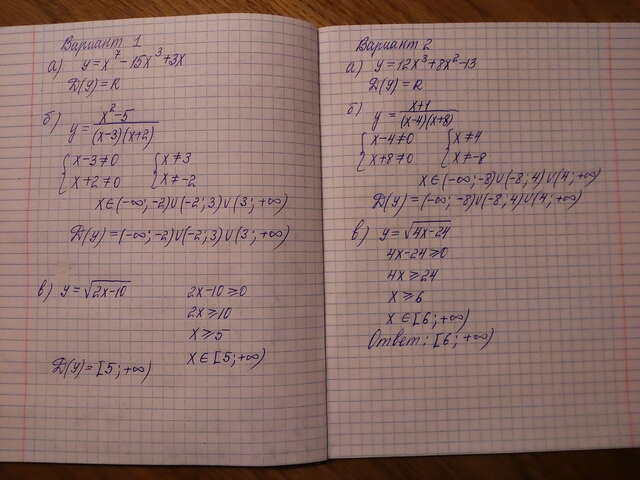 Вариант 1
а) y = x^7 - 15x^3 + 3x
D(y) = R
б) y = (x^2 - 5)/((x-3)(x+2))
{x-3≠0 {x≠3
{x+2≠0 {x≠-2
x∈(-∞;-2)∪(-2;3)∪(3;+∞)
D(y)=(-∞;-2)∪(-2;3)∪(3;+∞)
в) y = √(2x-10) 2x-10≥0
2x≥10
x≥5
x∈[5;+∞)
D(y)=[5;+∞)
Вариант 2
а) y=12x^3+8x^2-13
D(y)=R
б) y = (x+1)/((x-4)(x+8))
{x-4≠0 {x≠4
{x+8≠0 {x≠-8
x∈(-∞;-8)∪(-8;4)∪(4;+∞)
D(y)=(-∞;-8)∪(-8;4)∪(4;+∞)
в) y=√(4x-24)
4x-24≥0
4x≥24
x≥6
x∈[6;+∞)
Ответ: [6;+∞)